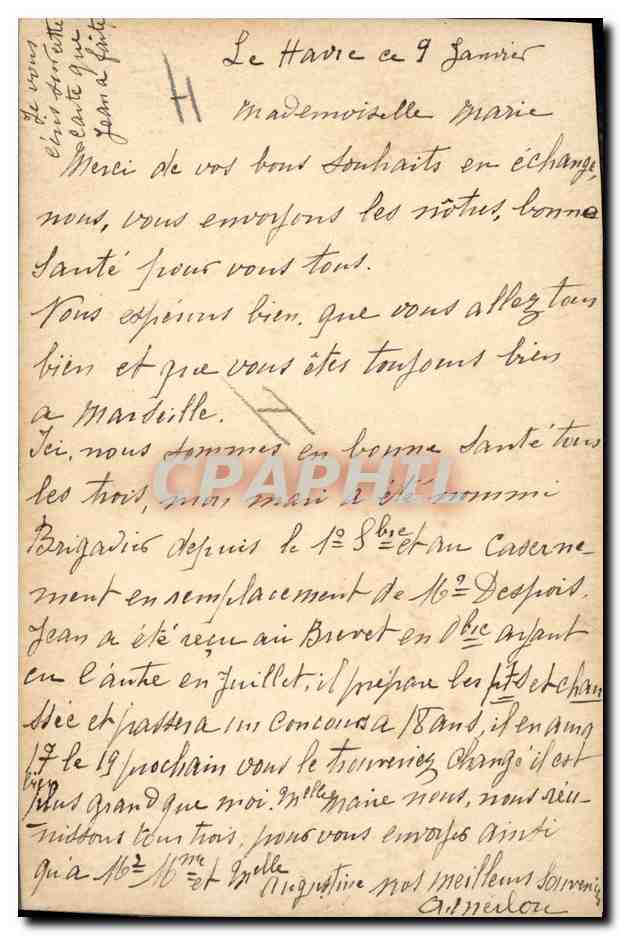 Je vous
écris sur cette
carte que
Jean a faite
Le Havre ce 9 Janvier
H
Mademoiselle Marie
Merci de vos bons souhaits en échange,
nous, vous envoyons les nôtres, bonne
Santé pour vous tous.
Nous espérons bien que vous allez tous
bien et que vous êtes toujours bien
a Marseille.
H
Ici, nous sommes en bonne santé tous
les trois, mon mari a été nommé
CPAPHIL
Brigadier depuis le 1º Sbre et au Caserne-
ment en remplacement de Mr Despois.
Jean a été reçu au Brevet en Obre ayant
eu l'autre en Juillet, il prépare les pts et chau
ssée et passera un concours a 18 ans, il en aura
17 le 19 prochain vous le trouveriez changé il est
bien
plus grand que moi. Melle Marie nous, nous réu-
nissons tous trois, pour vous envoyer ainsi
qu'a Mr Mme et Melle Augustine nos meilleurs souvenirs